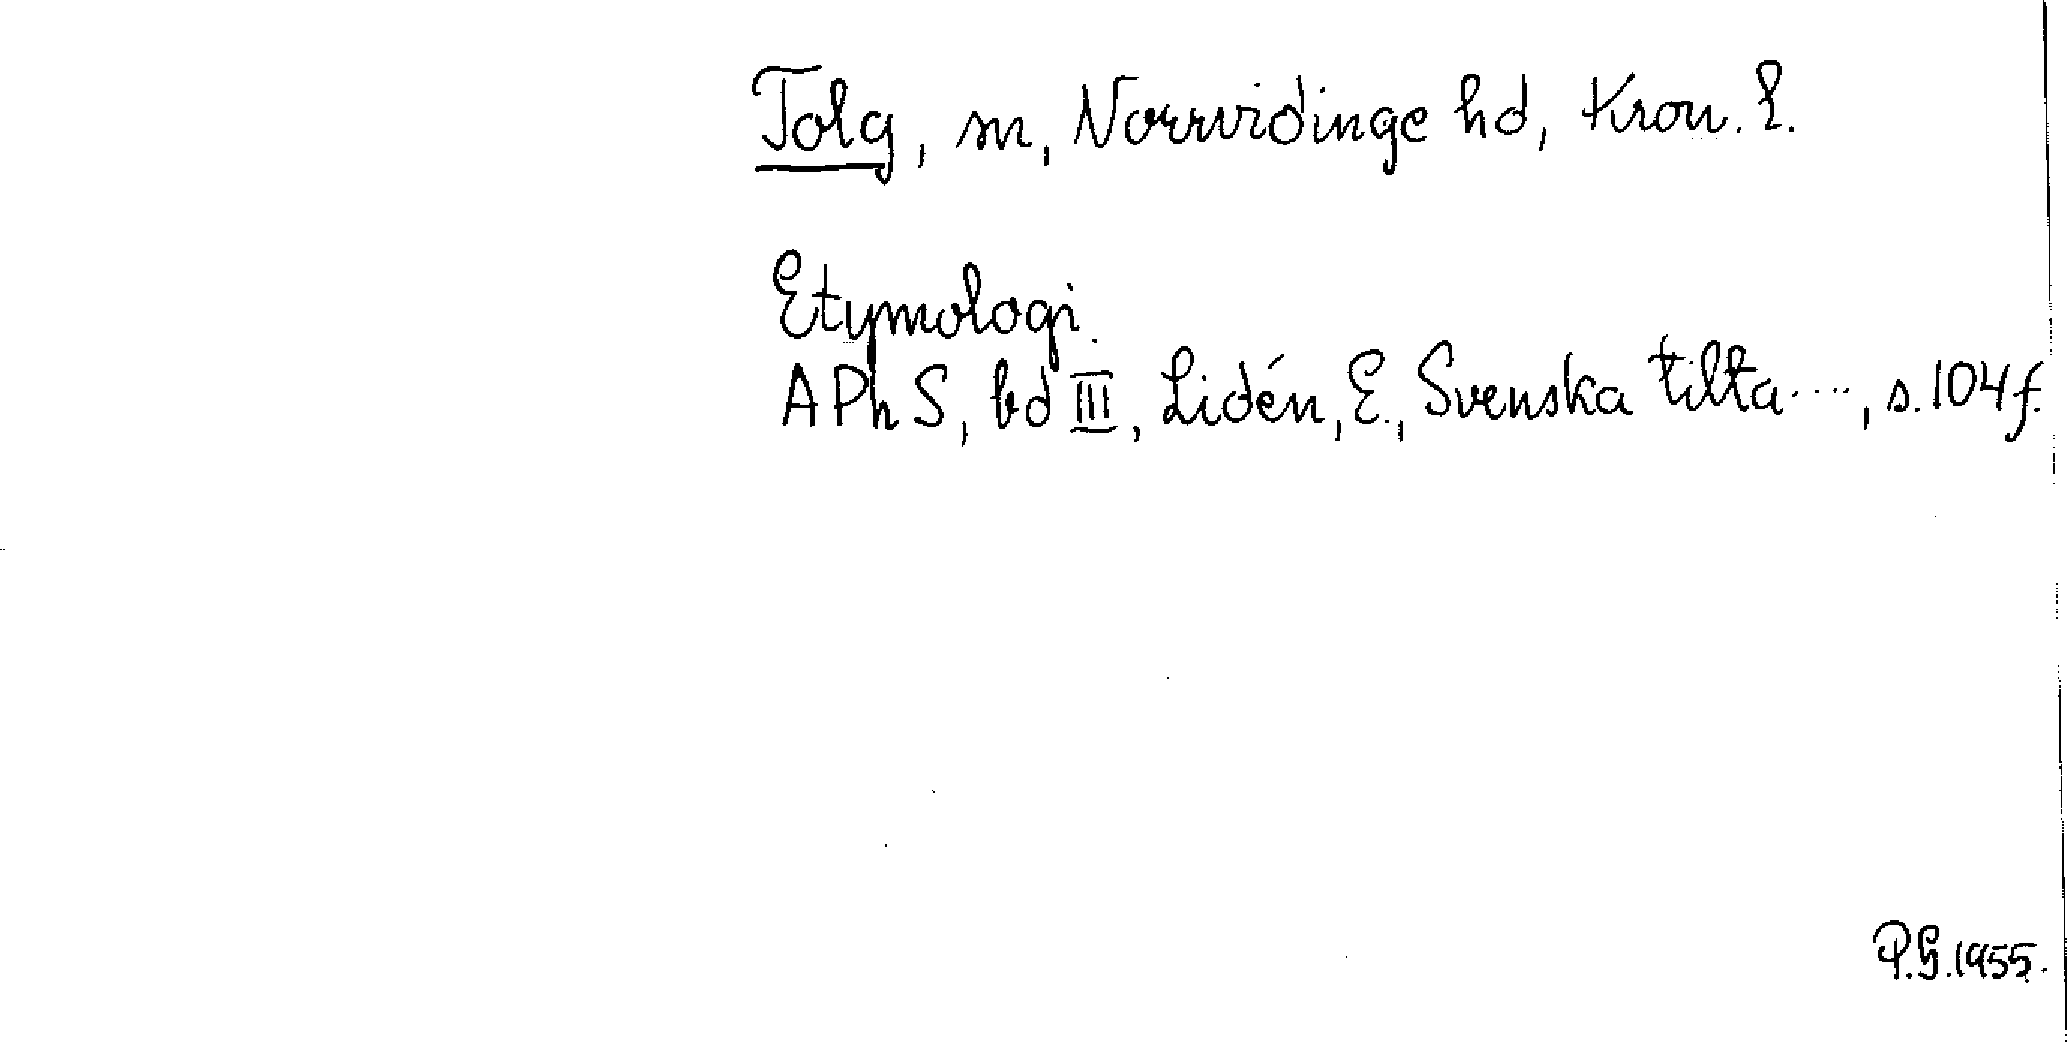 Tolg, sn, Norrvidinge hd, Kron. l.
Etymologi.
APhS, bd III, Lidén, E., Svenska tilta...., s. 104 f.
P.G. 1955.